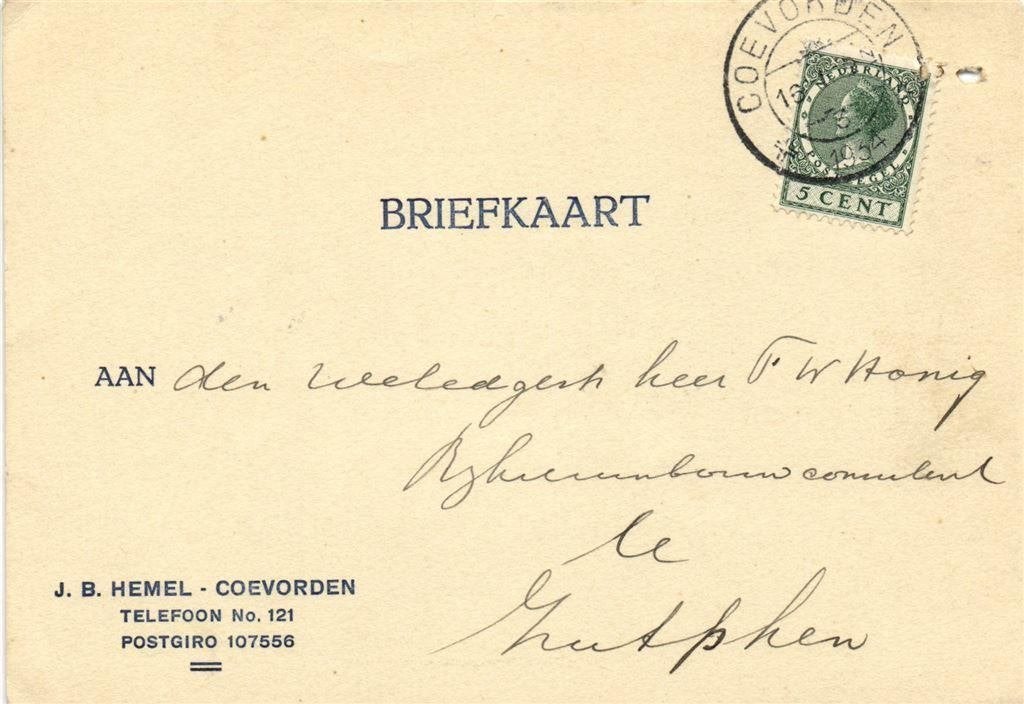 COEVORDEN
1934
NEDERLAND
POSTZEGEL
5 CENT
BRIEFKAART
AAN den weledgestr heer F W Honig
Rijkstuinbouwconsulent
te
Zutphen
J. B. HEMEL - COEVORDEN
TELEFOON No. 121
POSTGIRO 107556